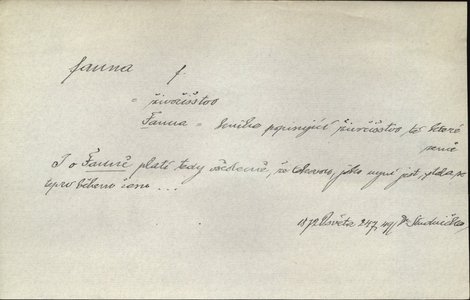 fauna f.
= živočišstvo
Fauna = kniha popisující živočišstvo té které
země
I o Fauně platí tedy všeobecně, že takovou, jako nyní jest, stala se
teprv během času ...
1872 Osvěta 247, Dr Studnička